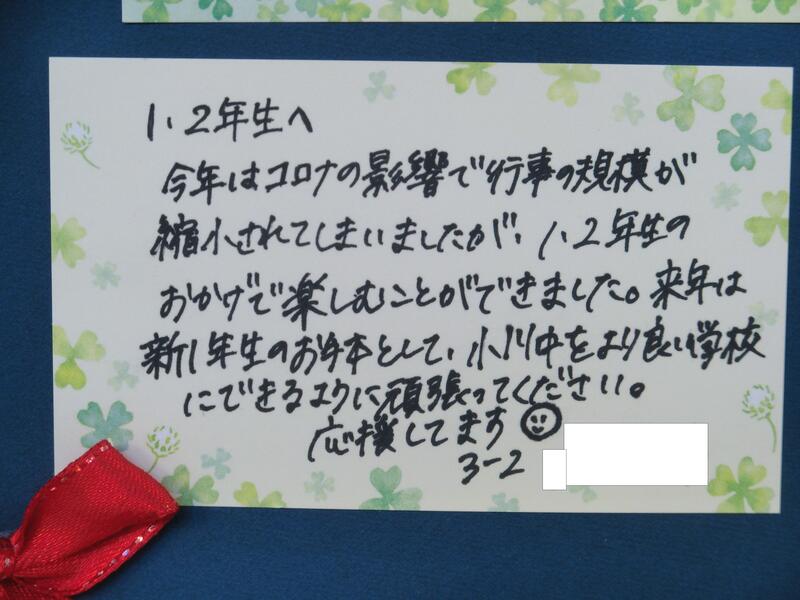 1.2年生へ
今年はコロナの影響で行事の規模が
縮小されてしまいましたが、1.2年生の
おかげで楽しむことができました。来年は
新1年生のお手本として、小川中をより良い学校
にできるように頑張ってください。
応援してます
3-2